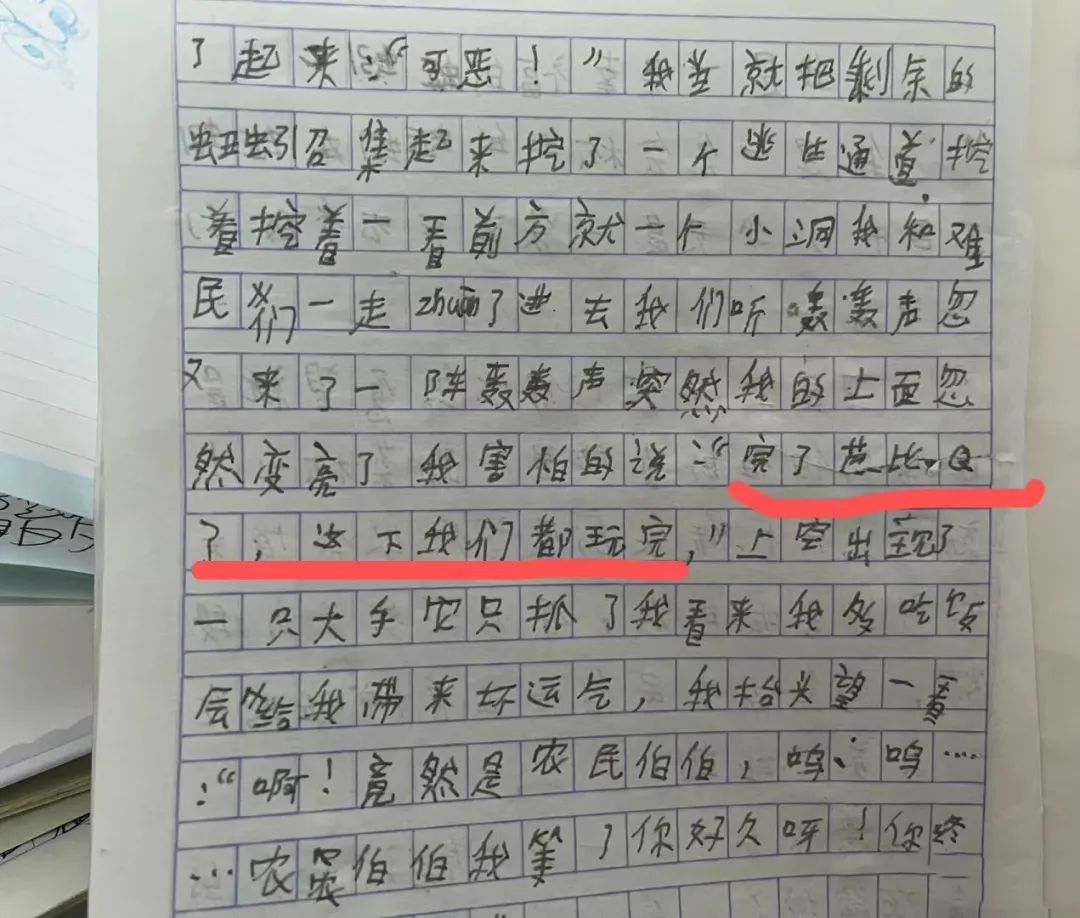 了起来:“可恶！”我并就把剩余的
蚯蚓召集起来挖了一个逃生通道.挖
着挖着一看前方就一个小洞我和难
民们一走zhuan了进去我们听轰轰声忽
又来了一阵轰轰声突然我的上面忽
然变亮了我害怕的说:“完了芭比Q
了，这下我们都玩完，”上空出现了
一只大手它只抓了我看来我多吃饭
会给我带来坏运气，我抬头望一看
:“啊！竟然是农民伯伯，呜、呜…
…农民伯伯我等了你好久呀！你终